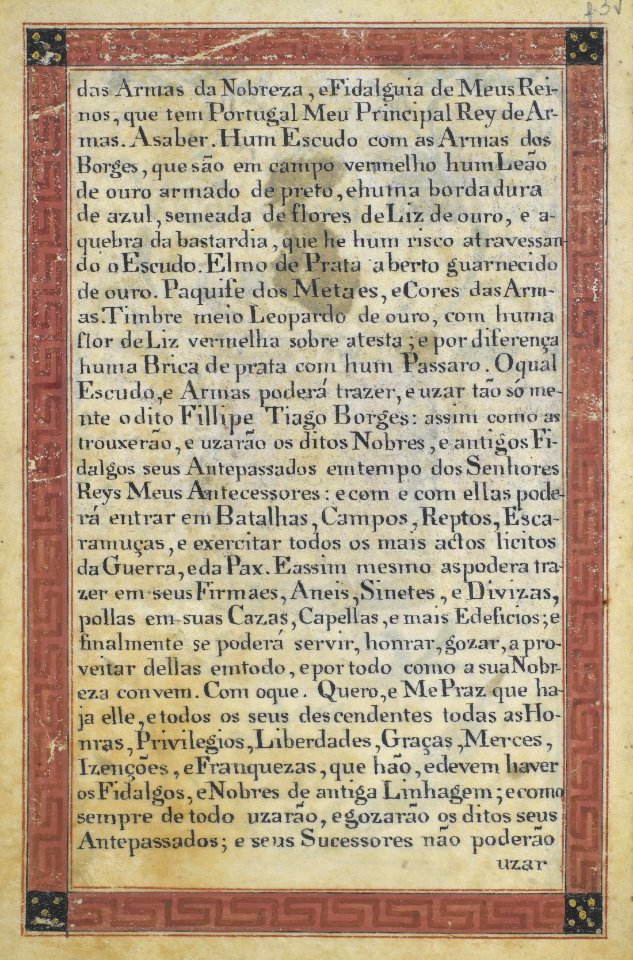 das Armas da Nobreza, eFidalguia de Meus Rei-
nos, que tem Portugal Meu Principal Rey de Ar-
mas. Asaber. Hum Escudo com as Armas dos
Borges, que são em campo vermelho hum Leão
de ouro armado de preto, ehuma bordadura
de azul, semeada de flores de Liz de ouro, e a-
quebra da bastardia, que he hum risco atravessan-
do o Escudo. Elmo de Prata aberto guarnecido
de ouro. Paquife dos Metaes, eCores das Arm-
as. Timbre meio Leopardo de ouro, com huma
flor de Liz vermelha sobre atesta; e por diferença
huma Brica de prata com hum Passaro. Oqual
Escudo, e Armas poderá trazer, e uzar tão só me-
nte odito Fillipe Tiago Borges: assim como as
trouxerão, e uzarão os ditos Nobres, e antigos Fi-
dalgos seus Antepassados emtempo dos Senhores
Reys Meus Antecessores: ecom e com ellas pode-
rá entrar em Batalhas, Campos, Reptos, Esca-
ramuças, e exercitar todos os mais actos licitos
da Guerra, eda Pax. Eassim mesmo aspodera tra-
zer em seus Firmaes, Aneis, Sinetes, e Divizas,
pollas em suas Cazas, Capellas, e mais Edeficios; e
finalmente se poderá servir, honrar, gozar, a pro-
veitar dellas emtodo, e por todo como a sua Nobr-
eza convem. Com oque. Quero, e Me Praz que ha-
ja elle, e todos os seus descendentes todas as Ho-
nras, Privilegios, Liberdades, Graças, Merces,
Izenções, e Franquezas, que hão, edevem haver
os Fidalgos, eNobres de antiga Linhagem; ecomo
sempre de todo uzarão, egozarão os ditos seus
Antepassados; e seus Sucessores não poderão
uzar